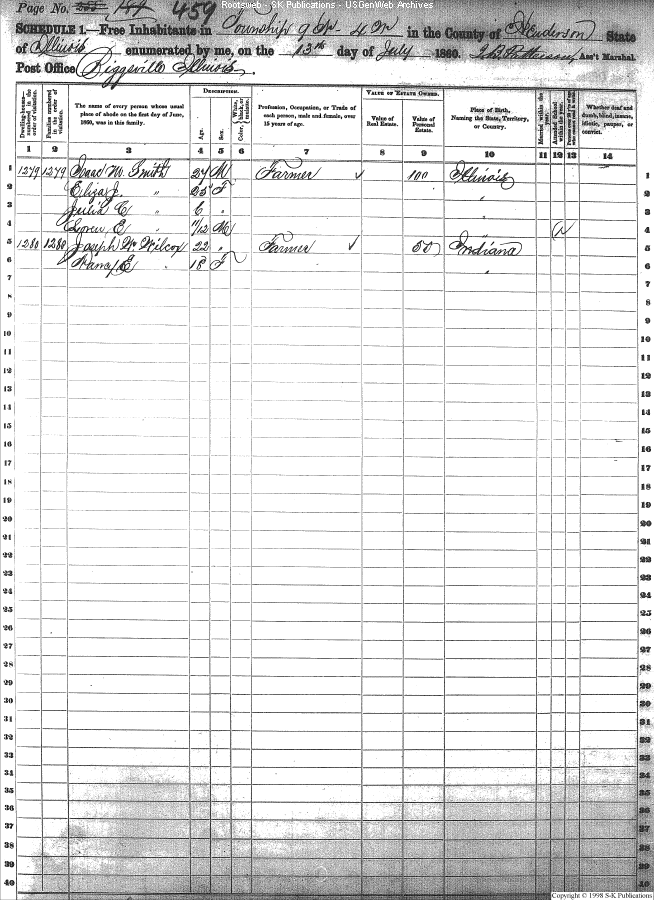 Rootsweb - SK Publications - USGenWeb Archives
Page No. 459
SCHEDULE 1.—Free Inhabitants in Township 9 N - 4 W in the County of Henderson State
of Illinois enumerated by me, on the 13th day of July 1860. Ass't Marshal.
Post Office Biggsville Illinois.
Dwelling-houses— numbered in the order of visitation.
Families numbered in the order of visitation.
The name of every person whose usual place of abode on the first day of June, 1860, was in this family.
DESCRIPTION.
Age.
Sex.
Color, White, black, or mulatto.
Profession, Occupation, or Trade of each person, male and female, over 15 years of age.
VALUE OF ESTATE OWNED.
Value of Real Estate.
Value of Personal Estate.
Place of Birth, Naming the State, Territory, or Country.
Married within the year.
Attended School within the year.
Whether deaf and dumb, blind, insane, idiotic, pauper, or convict.
1 2 3 4 5 6 7 8 9 10 11 12 13 14
1 1279 1279 Isaac M. Smith 27 M Farmer ✓ 100 Illinois 1
2 Eliza J. " 25 F " 2
3 Julia C " 6 " " 3
4 E " 11/12 M " 4
5 1280 1280 Joseph W. Wilcox 22 " Farmer ✓ 50 Indiana 5
6 E " 18 F " 6
7 7
8 8
9 9
10 10
11 11
12 12
13 13
14 14
15 15
16 16
17 17
18 18
19 19
20 20
21 21
22 22
23 23
24 24
25 25
26 26
27 27
28 28
29 29
30 30
31 31
32 32
33 33
34 34
35 35
36 36
37 37
38 38
39 39
40 40
Copyright © 1998 S-K Publications